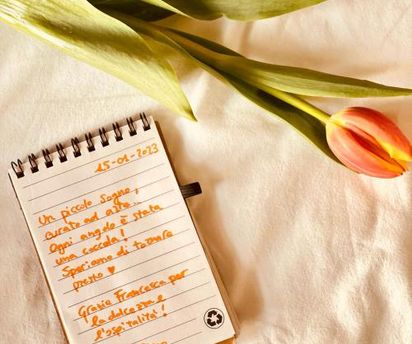 15-01-2023
Un piccolo sogno,
curato ad arte.
Ogni angolo è stata
una coccola!
Speriamo di tornare
presto ♥
Grazie Francesca per
la dolcezza e
l'ospitalità!